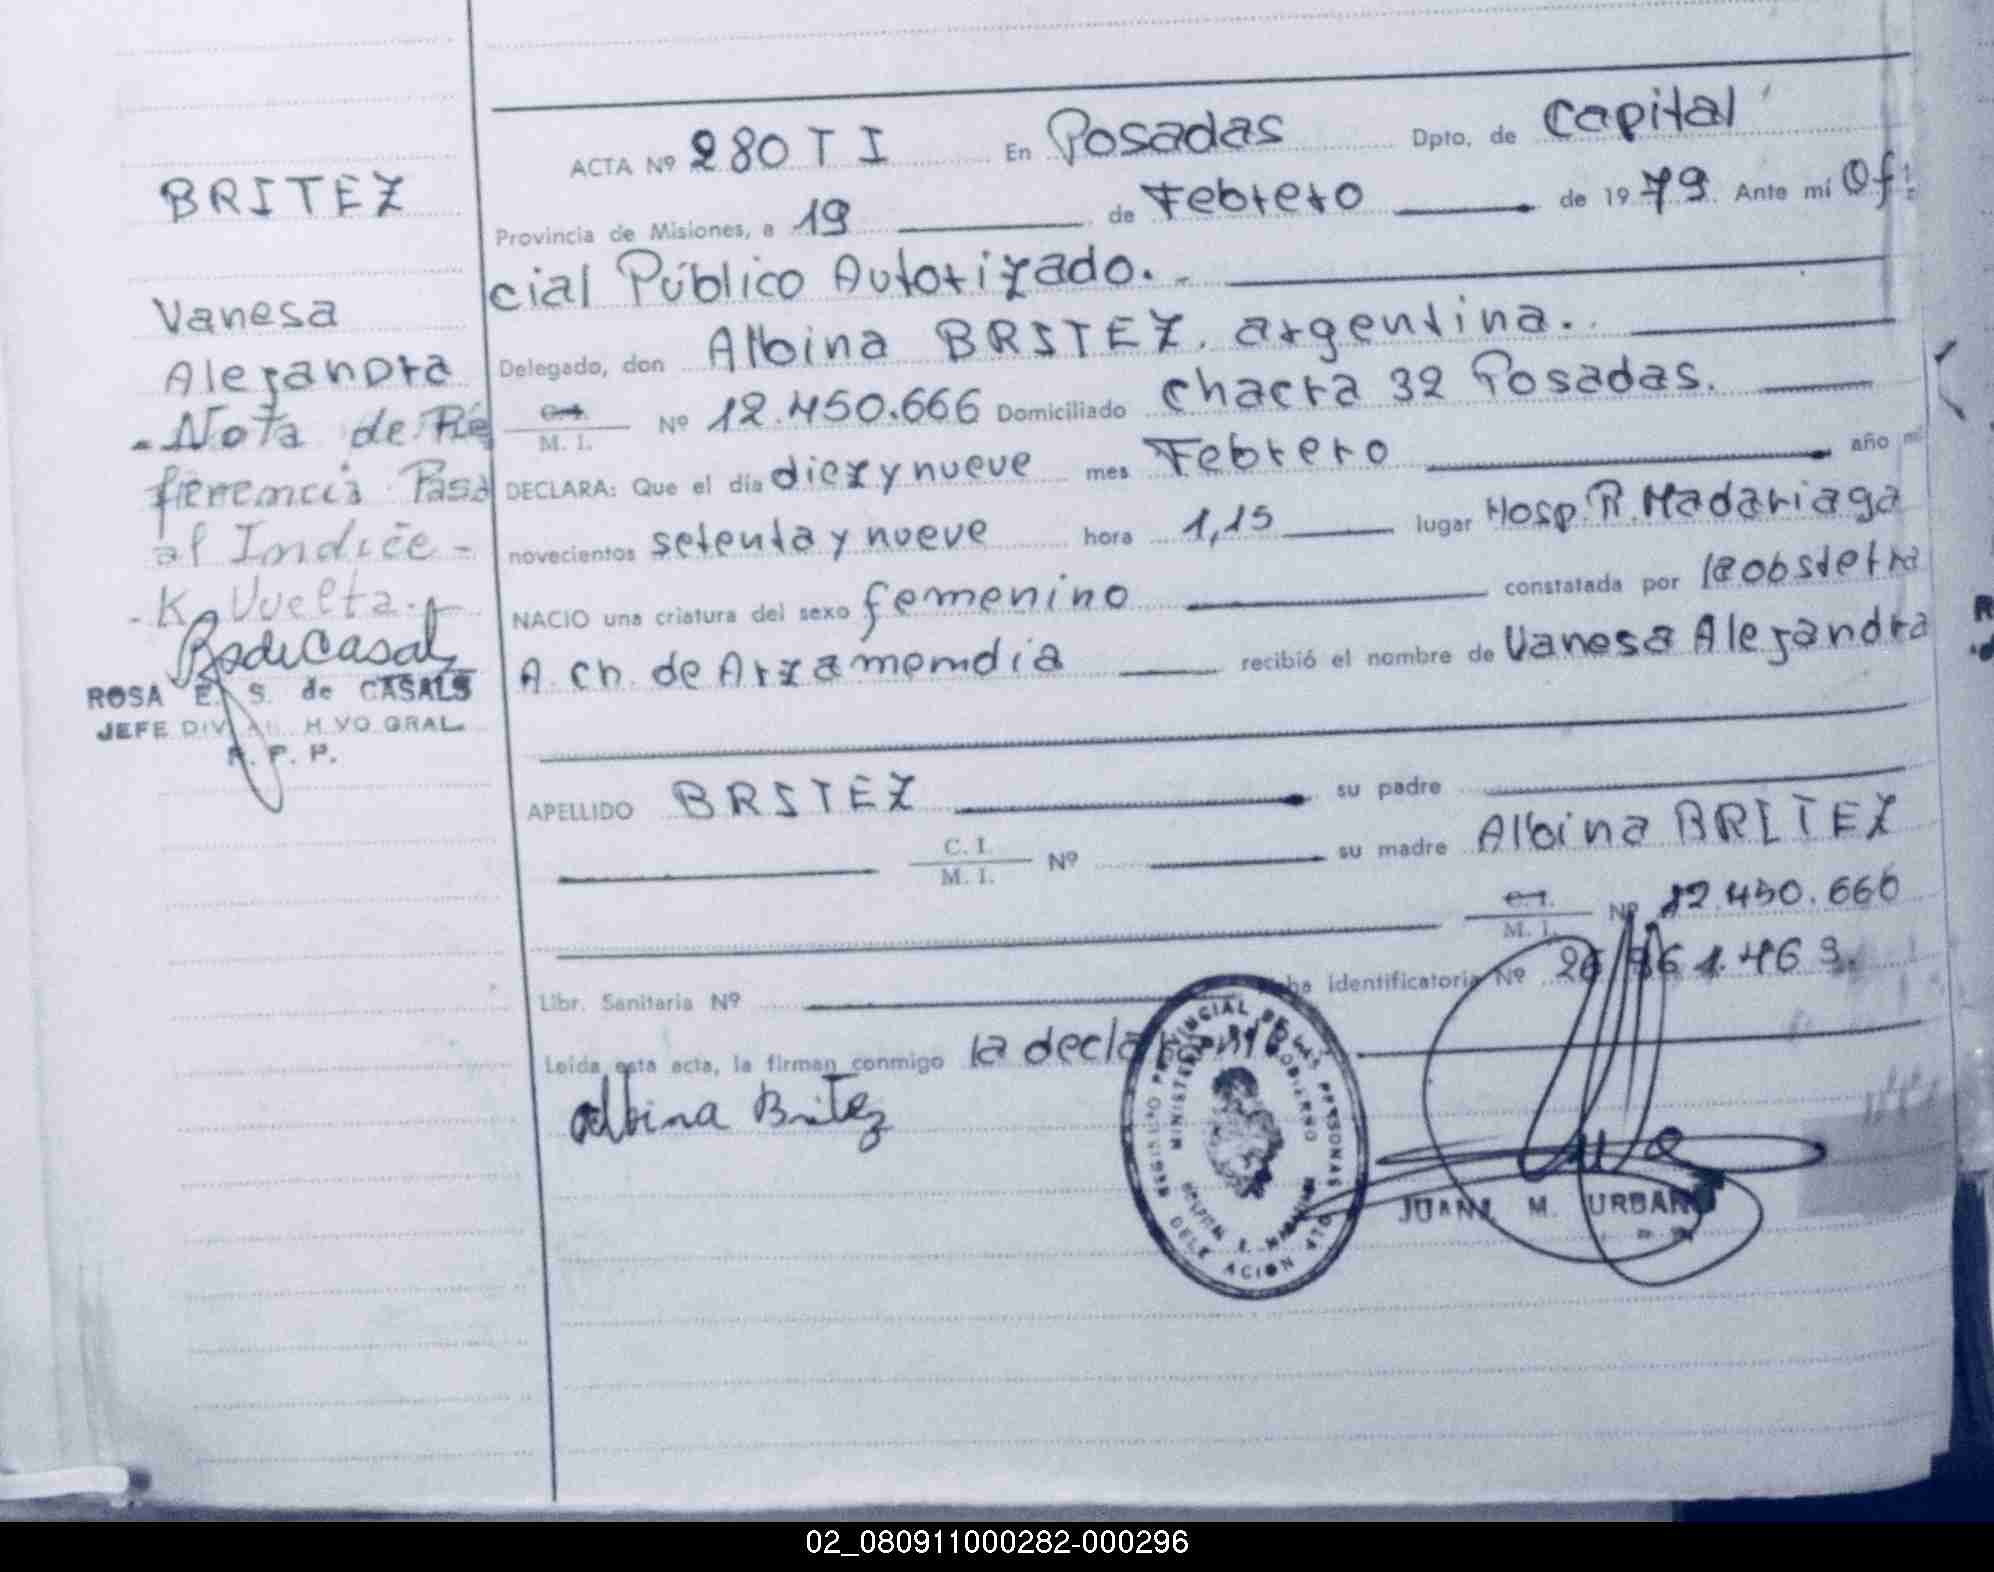 BRITEZ
Vanesa
Alejandra
- Nota de Re
ferencia Pasa
al Indice -
- K Vuelta.-
ROSA E. S. de CASALS
JEFE DIV. H VO GRAL.
R. P. P.
ACTA Nº 280 T I En Posadas Dpto. de Capital
Provincia de Misiones, a 19 de Febrero de 1979. Ante mí Ofi
cial Público Autorizado.-
Delegado, don Albina BRITEZ, argentina.
C.I. M. I. Nº 12.450.666 Domiciliado Chacra 32 Posadas.
DECLARA: Que el día diez y nueve mes Febrero año mi
novecientos setenta y nueve hora 1,15 lugar Hosp. R. Madariaga
NACIO una criatura del sexo femenino constatada por la obstetra
A. Ch. de Arzamemdia recibió el nombre de Vanesa Alejandra
APELLIDO BRITEZ su padre
C. I. M. I. Nº su madre Albina BRITEZ
C.I. M. I. Nº 12.450.666
Libr. Sanitaria Nº identificatoria Nº
Leída esta acta, la firman conmigo la
Albina Britez
REGISTRO PROVINCIAL DE LAS PERSONAS
MINISTERIO GOBIERNO
DELEGACION
JUANA M. URBANO
02_080911000282-000296